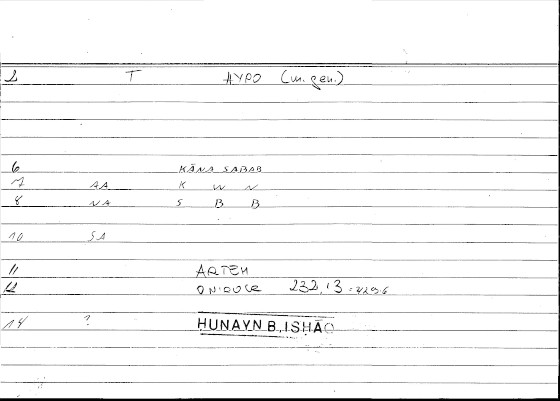 2 T HYPO (m. gen.)
6 KĀNA SABAB
7 AA K W N
8 NA S B B
10 SA
11 ARTEM
12 ONIROCR 232,13
14 ? HUNAYN B. ISHĀQ